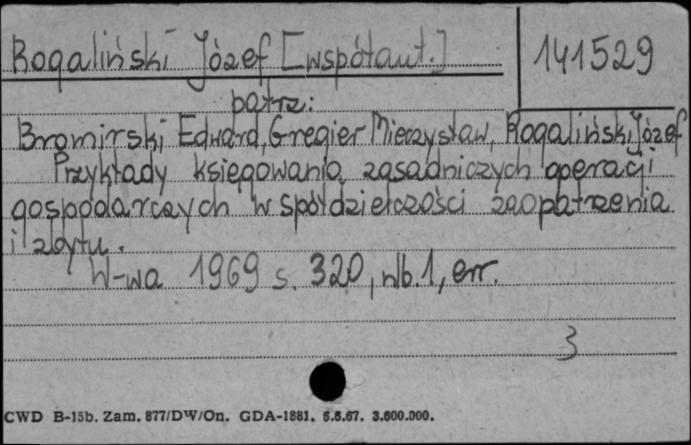 Rogaliński Józef [współaut.] 141529
patrz:
Bromirski Edward, Gregier Mieczysław, Rogaliński Józef
Przykłady księgowania zasadniczych operacji
gospodarczych w spółdzielczości zaopatrzenia
i zbytu.
W-wa 1969 s. 320, nlb. 1, err.
3
CWD B-15b. Zam. 877/DW/On. GDA-1881. 5.6.67. 3.600.000.